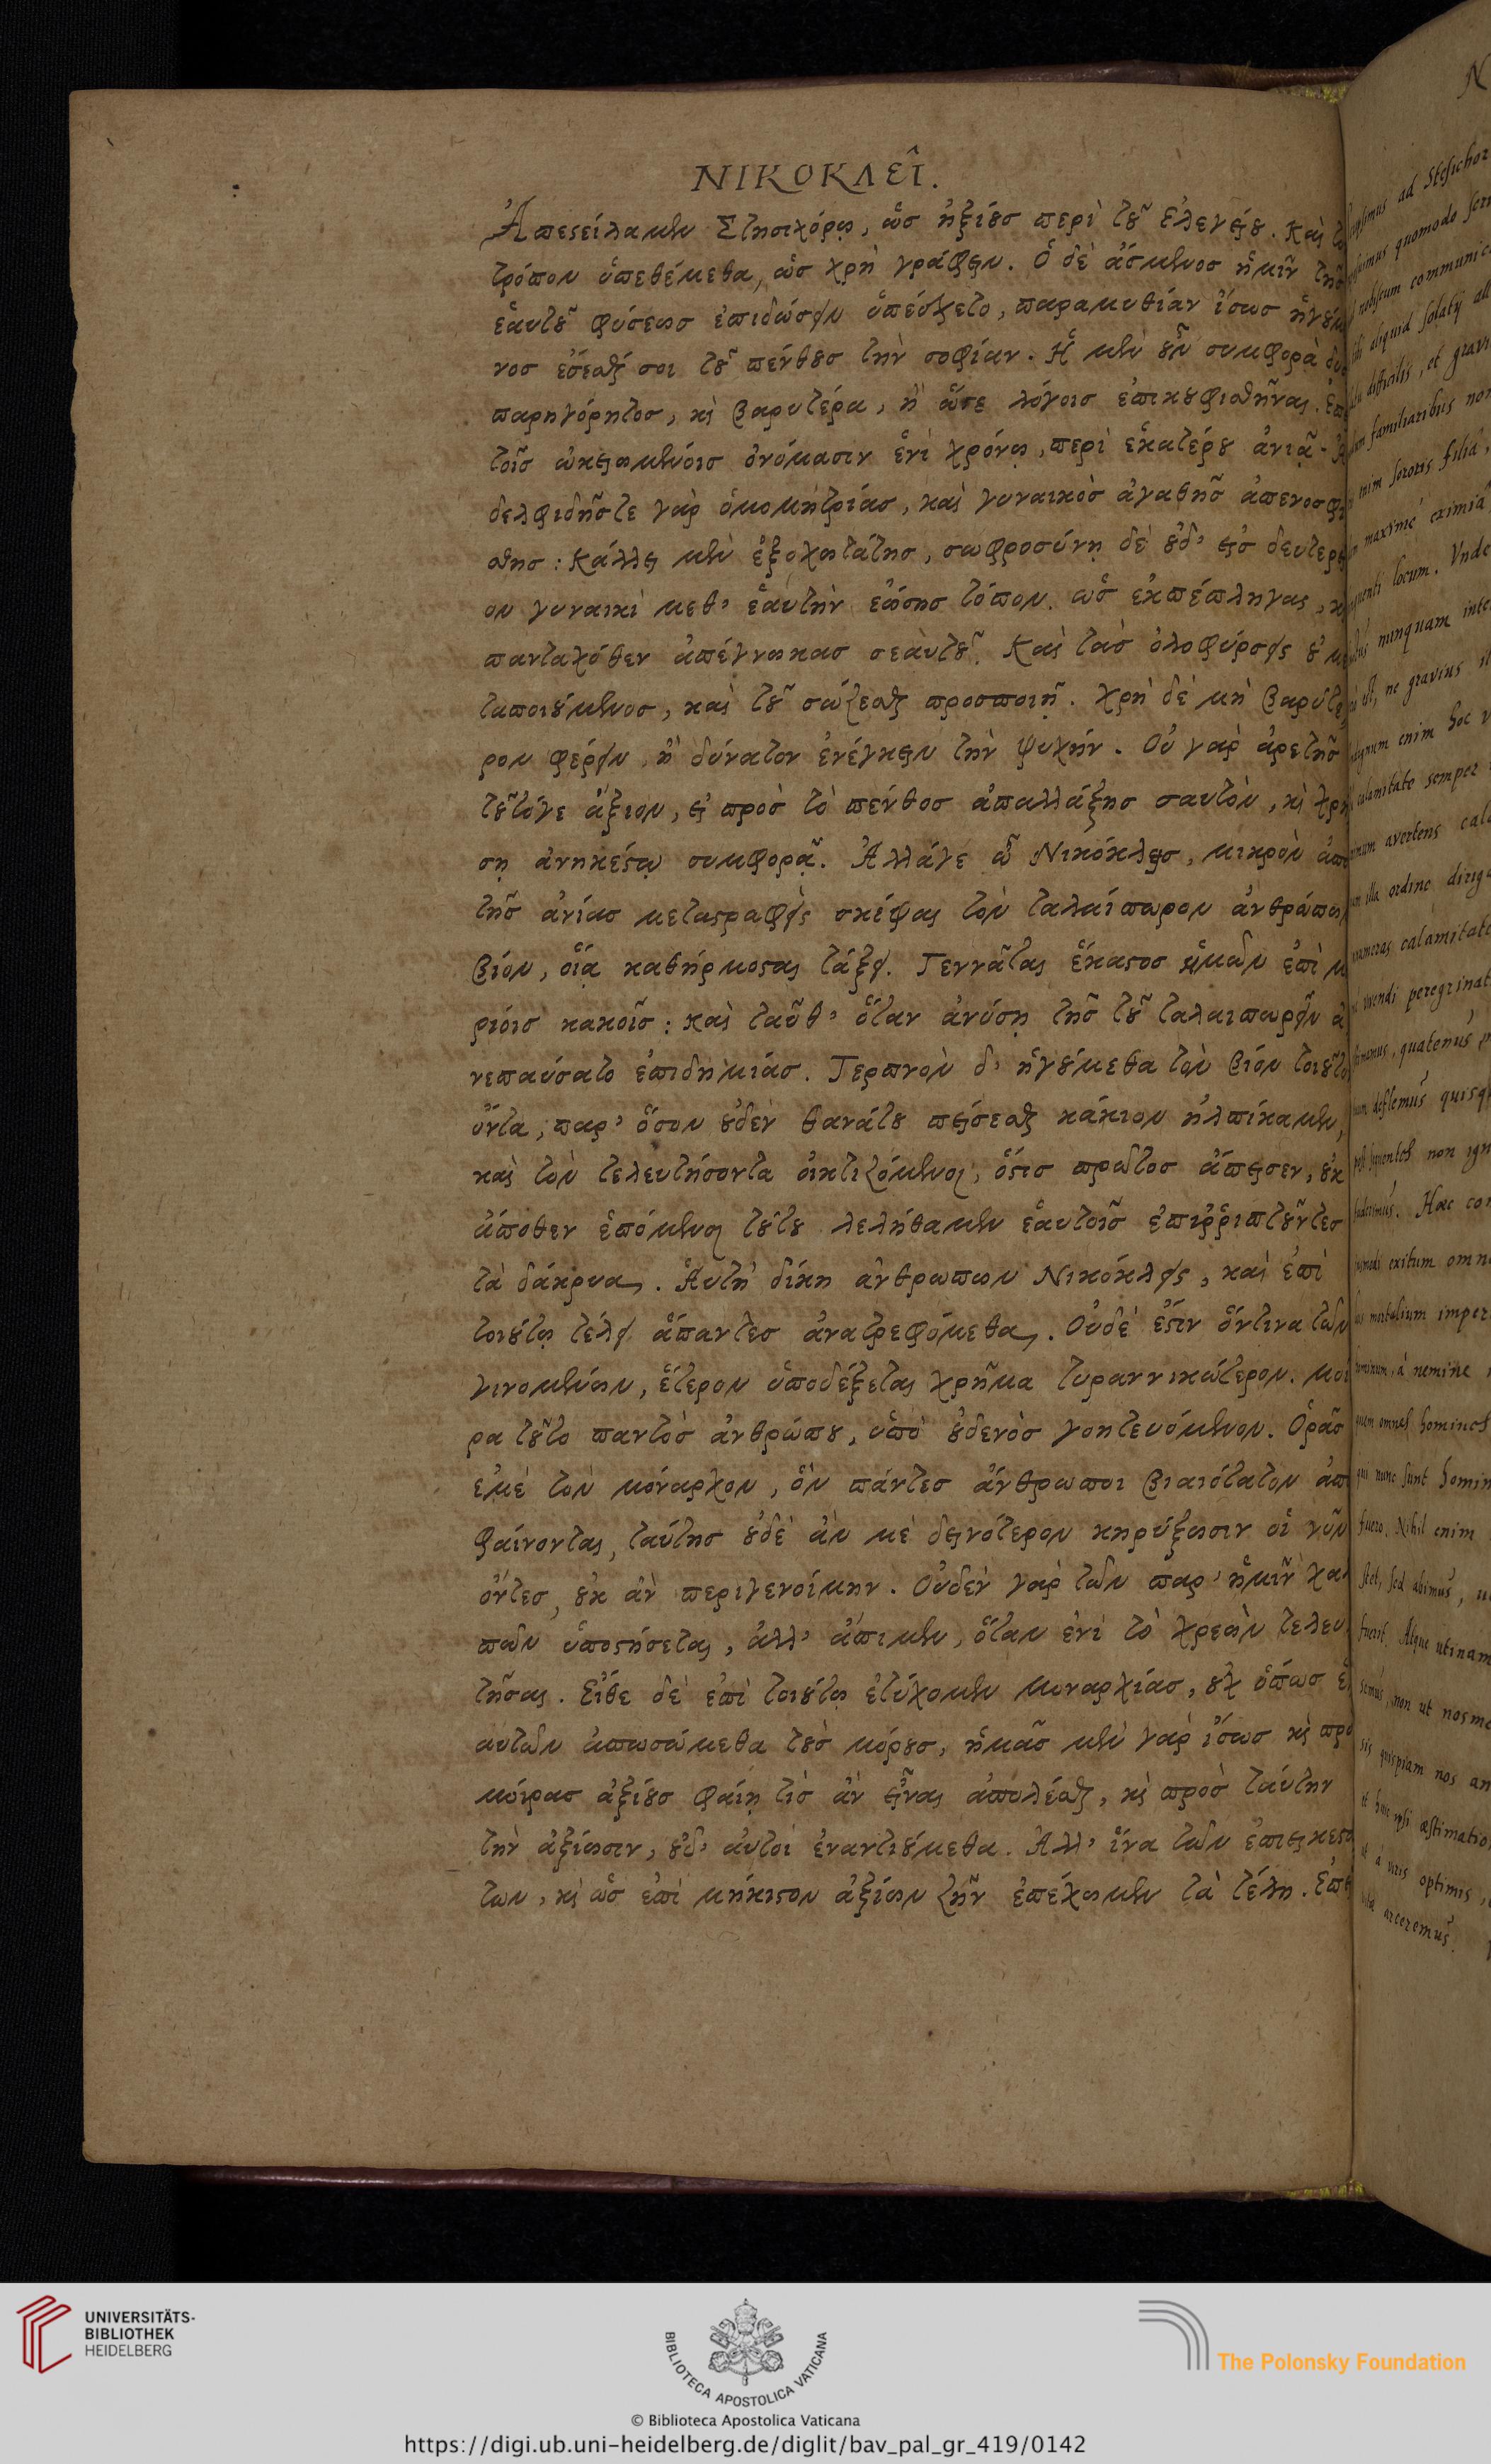 ΝΙΚΟΚΛΕΙ͂.
Ἀπεστείλαμεν Στησιχόρῳ, ὡσ ἠξίουσ περὶ τοῦ ἐλεγείου. Καὶ
τρόπον ὑπεθέμεθα, ὡσ χρὴ γράφειν. Ὁ δὲ ἄσμενοσ ἡμῖν τῆσ
ἑαυτοῦ φύσεωσ ἐπιδώσειν ὑπέσχετο, παραμυθίαν ἴσωσ ἡγούμ
νοσ ἔσεσθαί σοι τοῦ πένθουσ τὴν σοφίαν. Ἡ μὲν οὖν συμφορὰ δυσ
παρηγόρητοσ, καὶ βαρυτέρα, ἢ ὥστε λόγοισ ἐπικουφισθῆναι. Ἐπ
τοῖσ ᾠκειωμένοισ ὀνόμασιν ἑνὶ χρόνῳ, περὶ ἑκατέρου ἀνιᾷ.
δελφιδῆστε γὰρ ὁμομητρίασ, καὶ γυναικὸσ ἀγαθῆσ ἀπενοσφί
σθησ: κάλλει μὲν ἐξοχωτάτησ, σωφροσύνῃ δὲ οὐδ' εἰσ δευτερεῖ
ον γυναικὶ μεθ' ἑαυτὴν ἐώσησ τόπον. ὡσ ἐκπέπληγαι, καὶ
πανταχόθεν ἀπέγνωκασ σεαυτοῦ. Καὶ τὰσ ὀλοφύρσεις οὐ με
ταποιούμενοσ, καὶ τοῦ σώζεσθαι προσποιῇ. Χρὴ δὲ μὴ βαρύτε
ρον φέρειν, ἢ δύνατον ἐνέγκειν τὴν ψυχήν. Οὐ γὰρ ἀρετῆσ
τοῦτόγε ἄξιον, εἰ πρὸσ τὸ πένθοσ ἀπαλλάξησ σαυτὸν, καὶ χρή
σῃ ἀνηκέστῳ συμφορᾷ. Ἀλλάγε ὦ Νικόκλεισ, μικρὸν ἀπὸ
τῆσ ἀνίασ μεταστραφεὶς σκέψαι τὸν ταλαίπωρον ἀνθρώπων
βίον, οἵᾳ καθήρμοσται τάξει. Γεννᾶται ἕκαστοσ ἡμῶν ἐπὶ μ
ρίοισ κακοῖσ: καὶ ταῦθ' ὅταν ἀνύσῃ τῆσ τοῦ ταλαιπωρεῖν ἀ
νεπαύσατο ἐπιδημίασ. Τερπνὸν δ' ἡγούμεθα τὸν βίον τοιοῦτον
ὄντα, παρ' ὅσον οὐδὲν θανάτου πείσεσθαι κάκιον ἠλπίκαμεν,
καὶ τὸν τελευτήσοντα οἰκτιζόμενοι, ὅστισ πρῶτοσ ἄπεισεν, οὐκ
ἄποθεν ἑπόμενοι τούτου λελήθαμεν ἑαυτοῖσ ἐπιῤῥιπτοῦντεσ
τὰ δάκρυα. Αὐτὴ δίκη ἀνθρωπων Νικόκλεις, καὶ ἐπὶ
τοιούτῳ τέλει ἅπαντεσ ἀνατρεφόμεθα. Οὐδὲ ἔστιν ὅντινα τῶν
γινομένων, ἕτερον ὑποδέξεται χρῆμα τυραννικώτερον. μοῖ
ρα τοῦτο παντὸσ ἀνθρώπου, ὑπὸ οὐδενὸσ γοητευόμενον. Ὁρᾶσ
ἐμὲ τὸν μόναρχον, ὃν πάντεσ ἄνθρωποι βιαιότατον ἀπο
φαίνονται, ταύτησ οὐδὲ ἄν μὲ δεινότερον κηρύξωσιν οἱ νῦν
ὄντεσ, οὐκ ἂν περιγενοίμην. Οὐδὲν γὰρ τῶν παρ' ἡμῖν χαλ
πῶν ὑποστήσεται, ἀλλ' ἄπιμεν, ὅταν ἐνὶ τὸ χρεὼν τελευ
τῆσαι. Εἴθε δὲ ἐπὶ τοιούτῳ ἐτύχομεν μοναρχίασ, οὐχ ὅπωσ ἑ
αυτῶν ἀπωσώμεθα τοὺσ μόρουσ, ἡμᾶσ μὲν γὰρ ἴσωσ καὶ πρὸ
μοίρασ ἀξίουσ φαίη τὶσ ἂν εἶναι ἀπολέσθαι, καὶ πρὸσ ταύτην
τὴν ἀξίωσιν, οὐδ' αὐτοὶ ἐναντιούμεθα. Ἀλλ' ἵνα τῶν ἐπιεικεστά
των, καὶ ὡσ ἐπὶ μήκιστον ἀξίων ζῆν ἐπέχωμεν τὰ τέλη. Ἐπεὶ
N
ad Stesichor
quomodo scri
nobiscum communica
aliquid solatij
difficilis, et gravi
familiaribus non
enim sororis filia,
maximè eximia
locum. Unde
nunquam inte
est, ne gravius
enim hoc
calamitate semper
avertens cala
illa ordine dirig
calamitate
vivendi peregrinat
quatenus
deflemus quisq
non ign
Haec con
exitum omn
mortalium imper
à nemine
quem omnes homines
qui nunc sunt homin
fuero. Nihil enim
stet, sed abimus, u
fuerit. Atque utinam
non ut nosme
quispiam nos an
et huic ipsi æstimatio
ut a viris optimis,
arceremus.
UNIVERSITÄTS-
BIBLIOTHEK
HEIDELBERG
BIBLIOTECA APOSTOLICA VATICANA
© Biblioteca Apostolica Vaticana
The Polonsky Foundation
https://digi.ub.uni-heidelberg.de/diglit/bav_pal_gr_419/0142